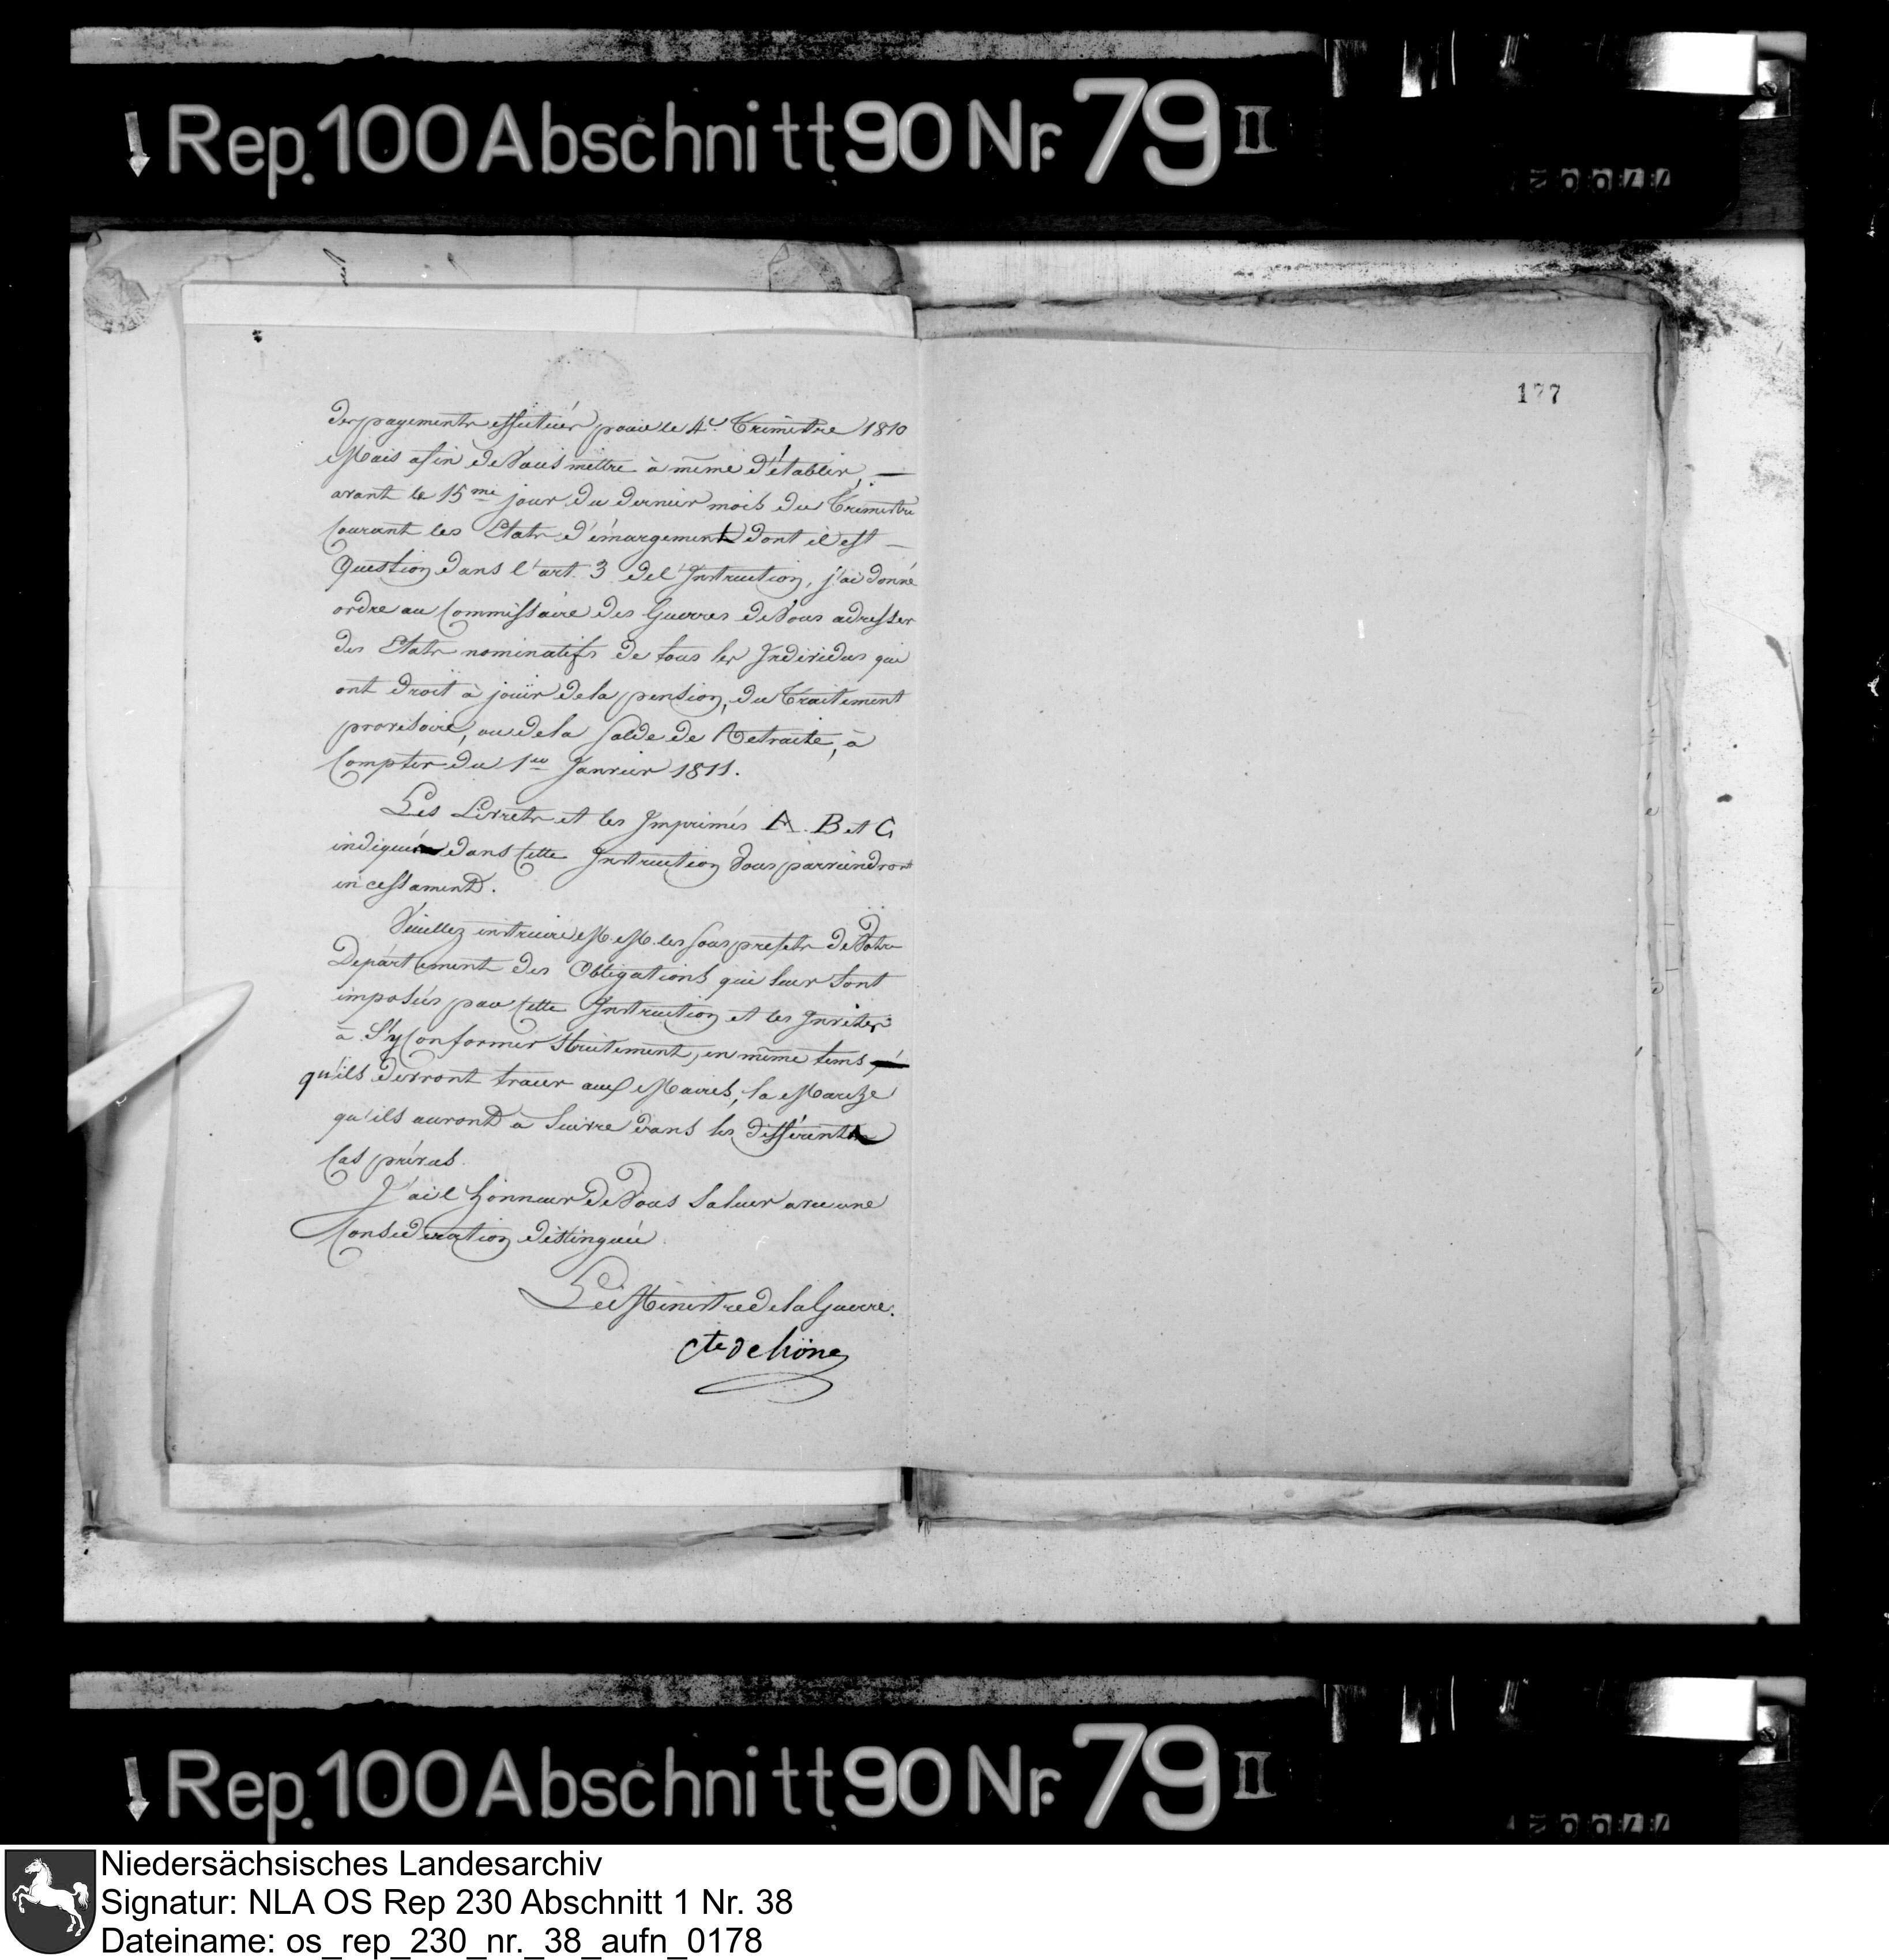 Rep. 100 Abschnitt 90 Nr. 79 II
177
des payements effectués pour le 4e. Trimestre 1810
Mais afin de Vous mettre à même d'établir, —
avant le 15me jour du dernier mois du Trimestre
Courant les Etats d'émargement dont il est —
Question dans l'art. 3 de l'Instruction, j'ai donné
ordre au Commissaire des Guerres de Vous adresser
des Etats nominatifs de tous les Individus qui
ont droit à jouir de la pension, du Traitement
provisoire, ou de la Solde de Retraite, à
Compter du 1er Janvier 1811.
Les Livrets et les Imprimés A. B et C
indiqués dans Cette Instruction Vous parviendront
incessament.
Veuillez instruire M.M. les Sous prefets de Votre
Département des Obligations qui leur sont
imposées par Cette Instruction et les Inviter
à S'y Conformer Strictement, en même tems
qu'ils devront tracer aux Maires, la Marche
qu'ils auront à Suivre dans les différents
Cas prévus.
J'ai l'honneur de Vous Saluer avec une
Consideration distinguée
Le Ministre de la Guerre.
Cte de hüne
Rep. 100 Abschnitt 90 Nr. 79 II
Niedersächsisches Landesarchiv
Signatur: NLA OS Rep 230 Abschnitt 1 Nr. 38
Dateiname: os_rep_230_nr._38_aufn_0178